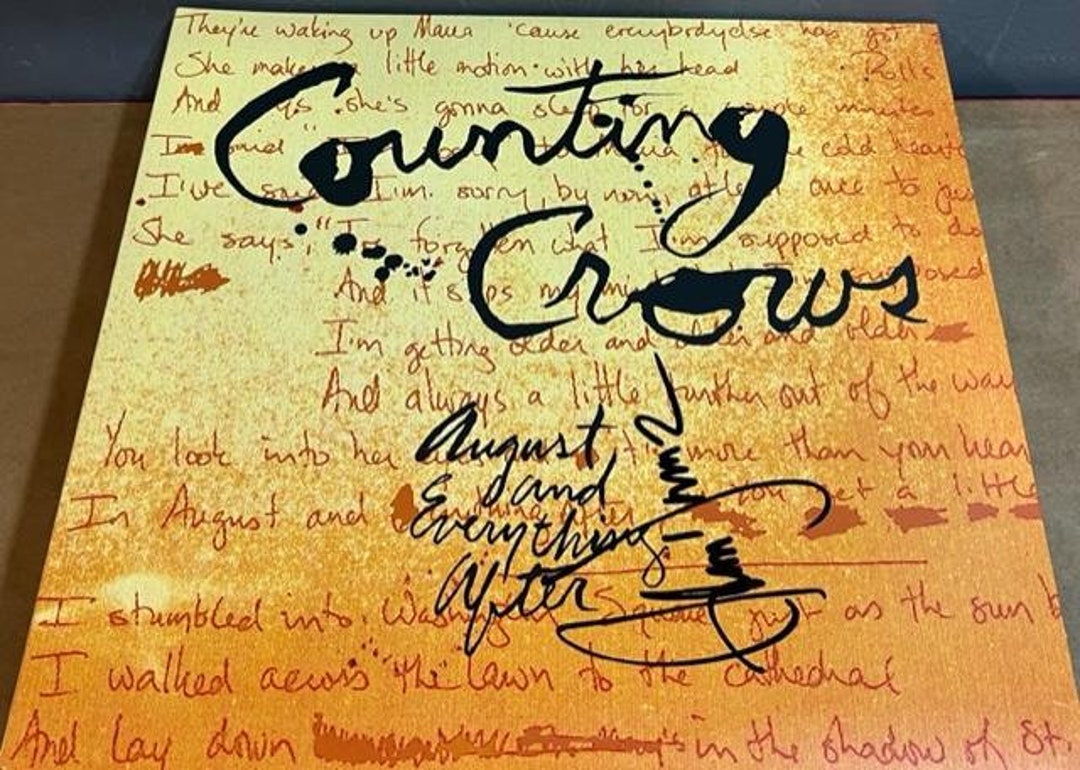 They're waking up Maria 'cause everybodyelse has got
She makes a little motion with her head Rolls
And she's gonna sleep for a couple minutes
I said " to Maria cold hearts
Counting
I've said I'm sorry, by now, at least once to
She says, "I've forgotten what I'm supposed to do
Crows
And it slips my mind
I'm getting older and older and older
And always a little further out of the way
August
and
Everything
After
You look into her more than your heart
In August and You get a little
I stumbled into Washington Square just as the sun
I walked across the lawn to the cathedral
And lay down in the shadow of St.